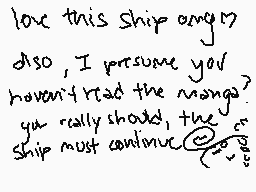 love this ship omg ♡
also, I presume you
haven't read the manga?
you really should, the
ship must continue